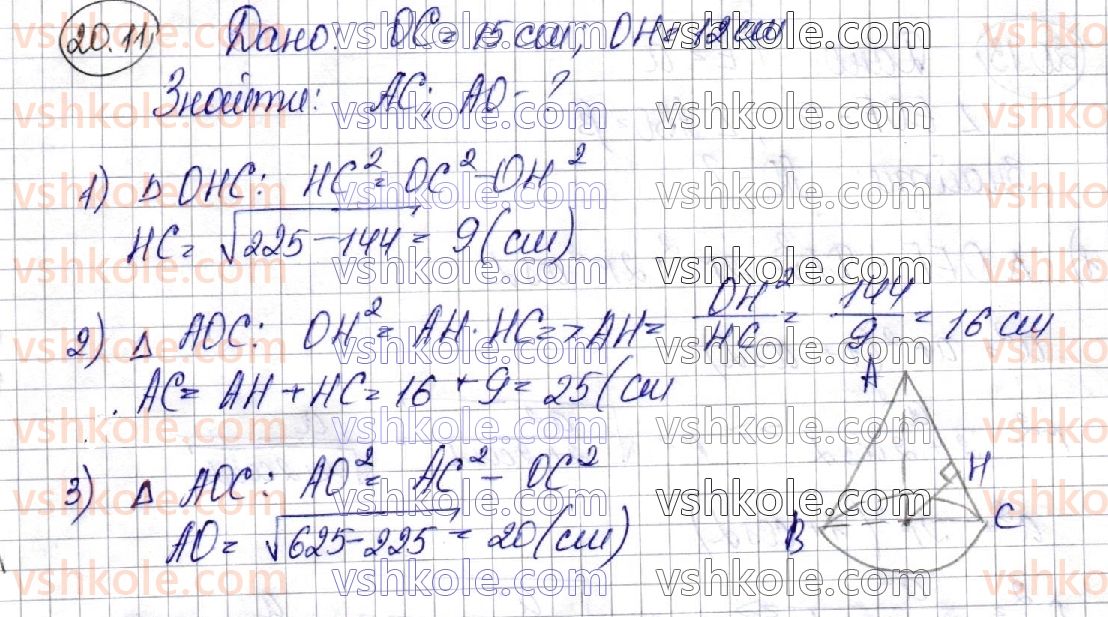 20.11
Дано: OC = 15 см; OH = 12 см
Знайти: AC; AO - ?
1) △ OHC: HC² = OC² - OH²
HC = √225 - 144 = 9 (см)
2) △ AOC: OH² = AH · HC => AH = OH²/HC = 144/9 = 16 см
AC = AH + HC = 16 + 9 = 25 (см
3) △ AOC: AO² = AC² - OC²
AO = √625 - 225 = 20 (см)
A
H
B
C
vshkole.com